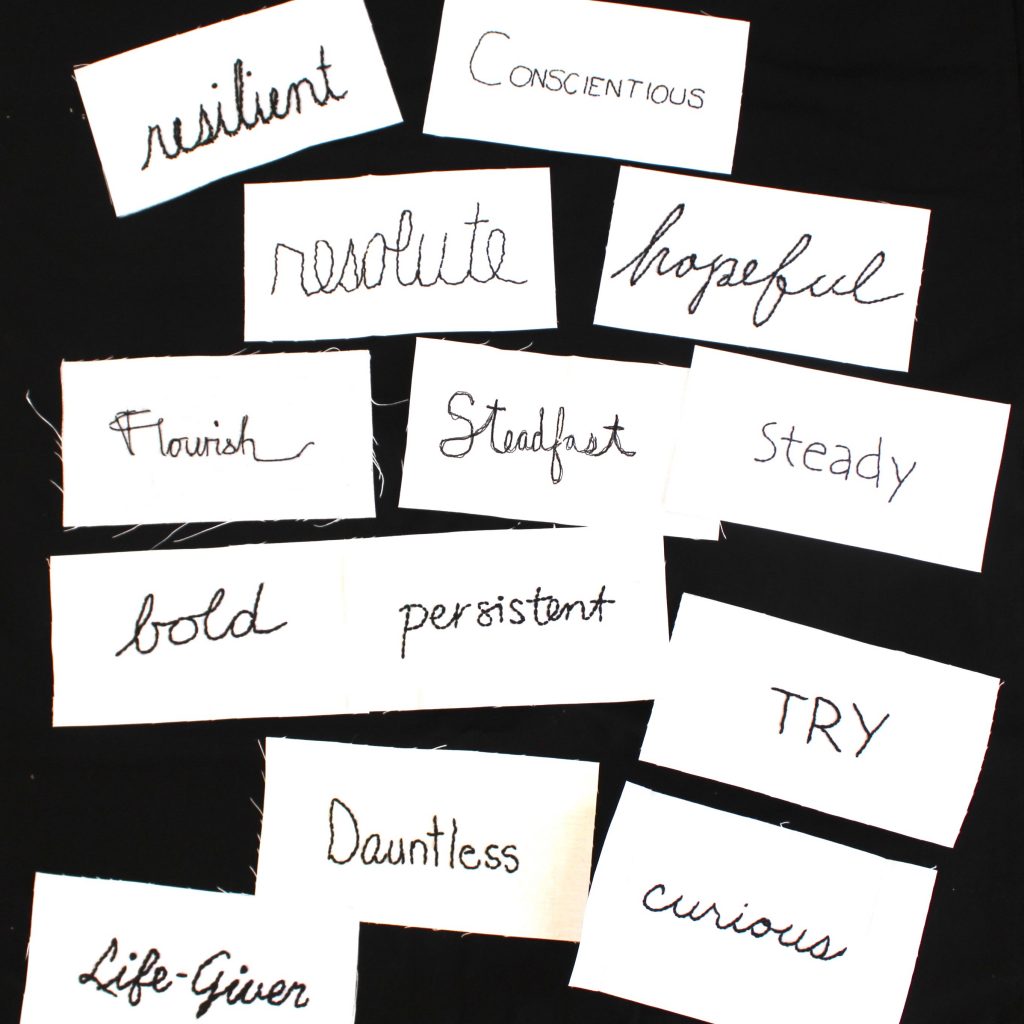 resilient
Conscientious
resolute
hopeful
Flourish
Steadfast
Steady
bold
persistent
TRY
Dauntless
curious
Life-Giver